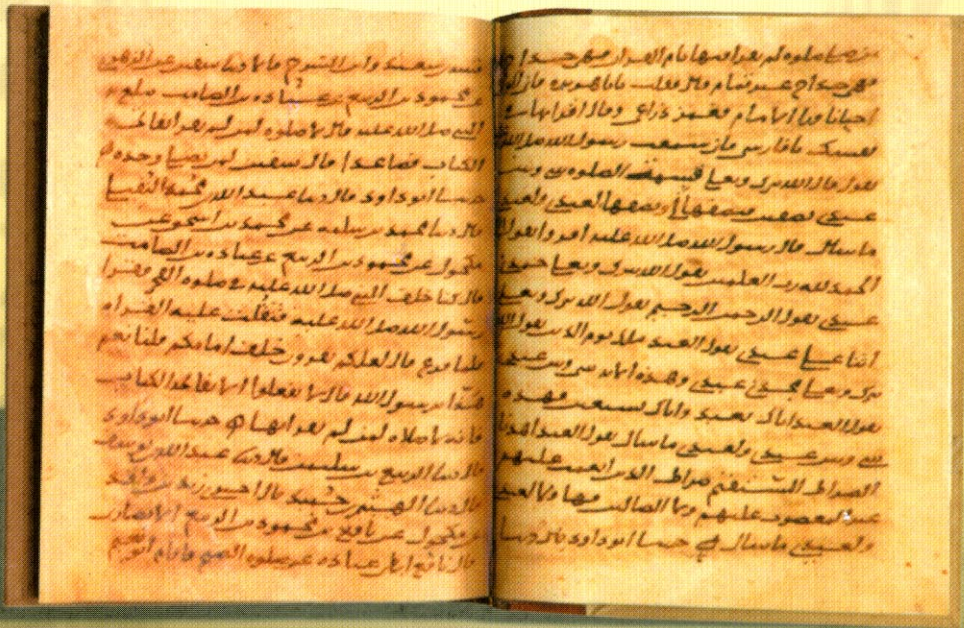 من صلى صلوه لم يقرا فيها بام القران فهي خداج
فهي خداج غير تمام قال فقلت يابا هريره فاني
احيانا ورا الامام فغمز ذراعي وقال اقرا بها في
نفسك يا فارسي فاني سمعت رسول الله صلى الله
يقول قال الله تبرك وتعلى قسمت الصلوه بيني وبين
عبدي نصفين فنصفها لي ونصفها لعبدي ولعبدي
ما سال قال رسول الله صلى الله عليه اقروا يقول
الحمد لله رب العلمين يقول الله تبرك وتعلى حمدني
عبدي يقول الرحمن الرحيم يقول الله تبرك وتعلى
اثنا علي عبدي يقول العبد ملك يوم الدين يقول الله
تبرك وتعلى مجدني عبدي وهذه الايه بيني وبين عبدي
يقول العبد اياك نعبد واياك نستعين فهذه
بيني وبين عبدي ولعبدي ما سال يقول العبد اهدنا
الصراط المستقيم صراط الذين انعمت عليهم
غير المغضوب عليهم ولا الضالين فهاولا لعبدي
ولعبدي ما سال حدثنا ابو داود قال حدثنا
قتيبه بن سعيد وابن السرح قالا حدثنا سفين عن الزهري
عن محمود بن الربيع عن عباده بن الصامت يبلغ به
النبي صلى الله عليه قال لا صلوه لمن لم يقرا بفاتحه
الكتاب فصاعدا قال سفين لمن يصلي وحده
حدثنا ابو داود قال حدثنا عبد الله بن محمد النفيلي
قال حدثنا محمد بن سلمه عن محمد بن اسحق عن
مكحول عن محمود بن الربيع عن عباده بن الصامت
قال كنا خلف النبي صلى الله عليه في صلوه الفجر فقرا
رسول الله صلى الله عليه فثقلت عليه القراه
فلما فرغ قال لعلكم تقرون خلف امامكم قلنا نعم
هذا يا رسول الله قال لا تفعلوا الا بفاتحه الكتاب
فانه لا صلاه لمن لم يقرا بها حدثنا ابو داود
قال حدثنا الربيع بن سليمن قال حدثنا عبد الله بن يوسف
قال حدثنا الهيثم بن حميد قال اخبرني زيد بن واقد
عن مكحول عن نافع بن محمود بن الربيع الانصاري
قال نافع ابطا عباده عن صلوه الصبح فاقام ابو نعيم